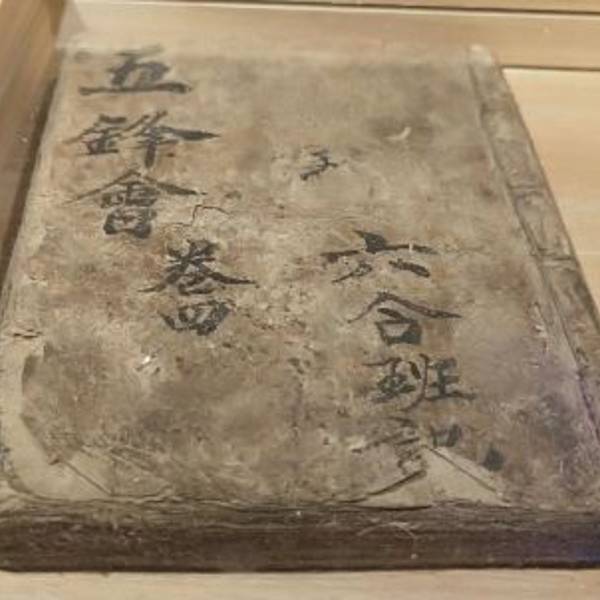 五鋒會
卷四
六合班記